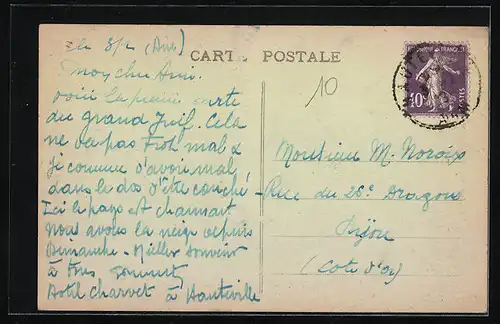 le 8/2 (Dim)
CARTE POSTALE
Mon cher Ami.
10
voici la première carte
du grand Juif. Cela
ne va pas trop mal &
je commence d'avoir mal
dans le dos d'être couché.
Ici le pays est charmant
Nous avons la neige depuis
Dimanche - Miller Souvenir
à tous
Hotel Charvet à Hauteville
REPUBLIQUE FRANÇAISE
10c
POSTES
Monsieur M. Noroix
Rue du 26e Dragons
Dijon
(Côte d'Or)